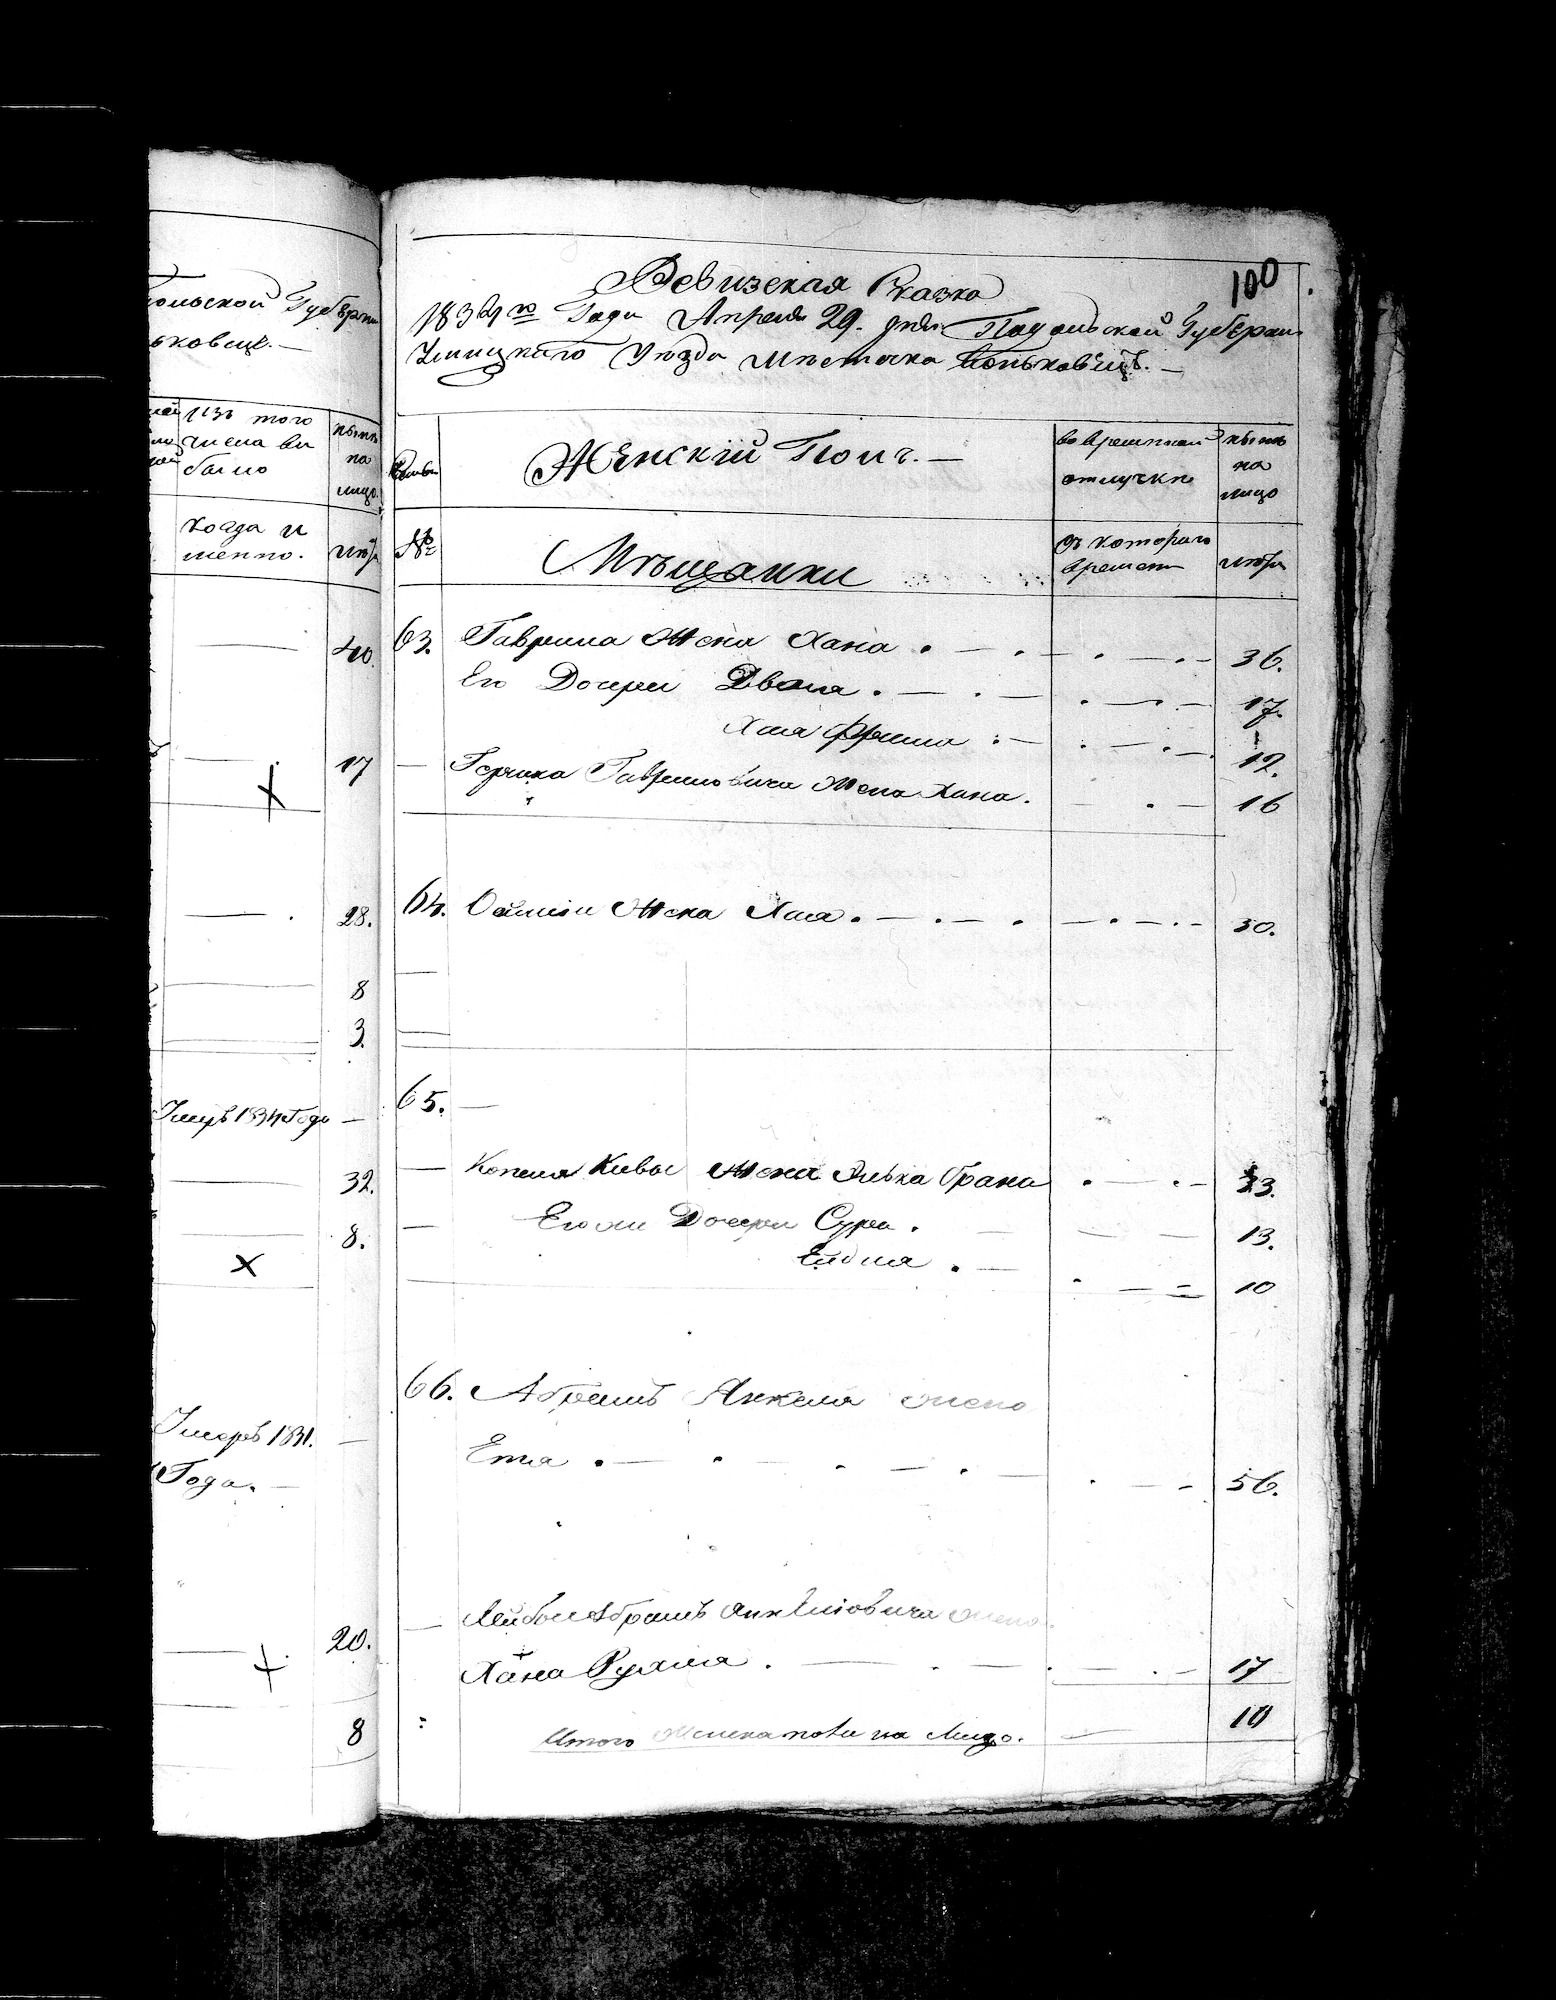 ольской Губерн
ьковец. —
изъ того
числа вы
было
нынѣ
на
лицо.
когда и
менно.
лѣта
— 40.
— 17
— 28.
— 8
— 3.
Умеръ 1834 Года —
— 32.
— 8.
Умеръ 1831. —
Года. —
— 20.
8
100
Ревизская Сказка
1834го Года Апреля 29. дня Подольской Губернии
Ушицкаго Уезда Мѣстечка Соньковецъ. —
Семьи
Женскій Полъ. —
во временной
отлучкѣ
нынѣ
на
лицо
№
Мѣщанки
съ котораго
времени
лѣта
63. Гаврила Жена Хана . — . — . — . — 36.
Его Дочери Двоиа . — . — . — . — 17.
Хая Фрима . — . — . — 12.
— Гершка Гавриловича Жена Хана. — . — 16
64. Жена Хая . — . — . — . — . — 30.
65. —
— Копеля Кивы Жена Элька Брана . — . — 33.
— Его же Дочери Сура . — — — 13.
Ейдля . — . — = 10
66. Абрамъ Янкеля жена
Етя . — . — . — . — . — — 56.
— Лейбы Абрамъ Янкелiовича жена
Хана Рухля . — . — . — . — 17
Итого Женска пола на Лицо. — 10